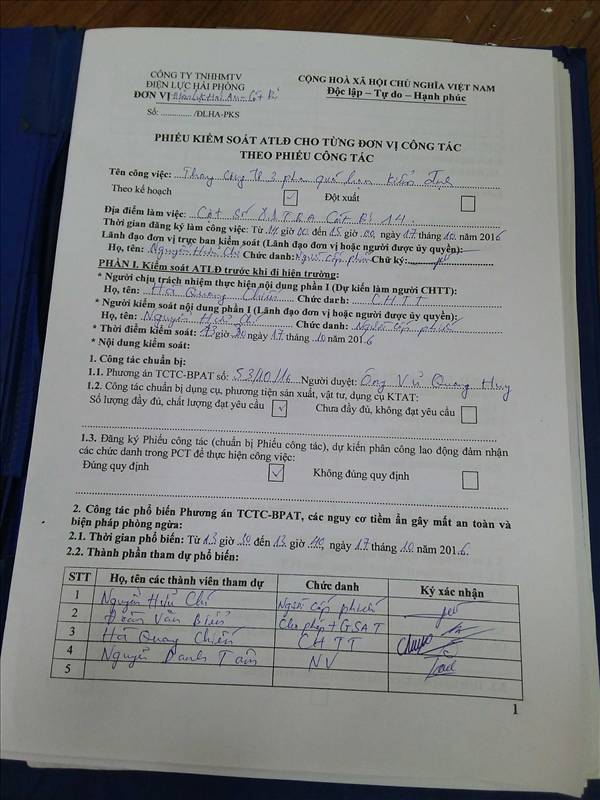 CÔNG TY TNHHMTV
ĐIỆN LỰC HẢI PHÒNG
ĐƠN VỊ
Số: ............ /ĐLHA-PKS
CỘNG HOÀ XÃ HỘI CHỦ NGHĨA VIỆT NAM
Độc lập – Tự do – Hạnh phúc
PHIẾU KIỂM SOÁT ATLĐ CHO TỪNG ĐƠN VỊ CÔNG TÁC
THEO PHIẾU CÔNG TÁC
Tên công việc: Thay công tơ 3 pha quá hạn kiểm định
Theo kế hoạch ☑ Đột xuất ☐
Địa điểm làm việc: Cột số TBA Cát Bi 14.
Thời gian đăng ký làm việc: Từ 14 giờ 00 đến 15 giờ 00, ngày 17 tháng 10 năm 2016
Lãnh đạo đơn vị trực ban kiểm soát (Lãnh đạo đơn vị hoặc người được ủy quyền):
Họ, tên: Nguyễn Hữu Chí Chức danh: Người cấp phiếu Chữ ký:
PHẦN I. Kiểm soát ATLĐ trước khi đi hiện trường:
* Người chịu trách nhiệm thực hiện nội dung phần I (Dự kiến làm người CHTT):
Họ, tên: Hà Quang Chiến Chức danh: CHTT
* Người kiểm soát nội dung phần I (Lãnh đạo đơn vị hoặc người được ủy quyền):
Họ, tên: Nguyễn Hữu Chí Chức danh: Người cấp phiếu
* Thời điểm kiểm soát: 13 giờ 30 ngày 17 tháng 10 năm 2016
* Nội dung kiểm soát:
1. Công tác chuẩn bị:
1.1. Phương án TCTC-BPAT số: 53/10/16 Người duyệt: Ông Vũ Quang Huy
1.2. Công tác chuẩn bị dụng cụ, phương tiện sản xuất, vật tư, dụng cụ KTAT:
Số lượng đầy đủ, chất lượng đạt yêu cầu ☑ Chưa đầy đủ, không đạt yêu cầu ☐
1.3. Đăng ký Phiếu công tác (chuẩn bị Phiếu công tác), dự kiến phân công lao động đảm nhận
các chức danh trong PCT để thực hiện công việc:
Đúng quy định ☑ Không đúng quy định ☐
2. Công tác phổ biến Phương án TCTC-BPAT, các nguy cơ tiềm ẩn gây mất an toàn và
biện pháp phòng ngừa:
2.1. Thời gian phổ biến: Từ 13 giờ 30 đến 13 giờ 40, ngày 17 tháng 10 năm 2016.
2.2. Thành phần tham dự phổ biến:
STT Họ, tên các thành viên tham dự Chức danh Ký xác nhận
1 Nguyễn Hữu Chí Người cấp phiếu
2 Đoàn Văn Biển Cho phép + GSAT
3 Hà Quang Chiến CHTT
4 Nguyễn Danh Tâm NV
5
1